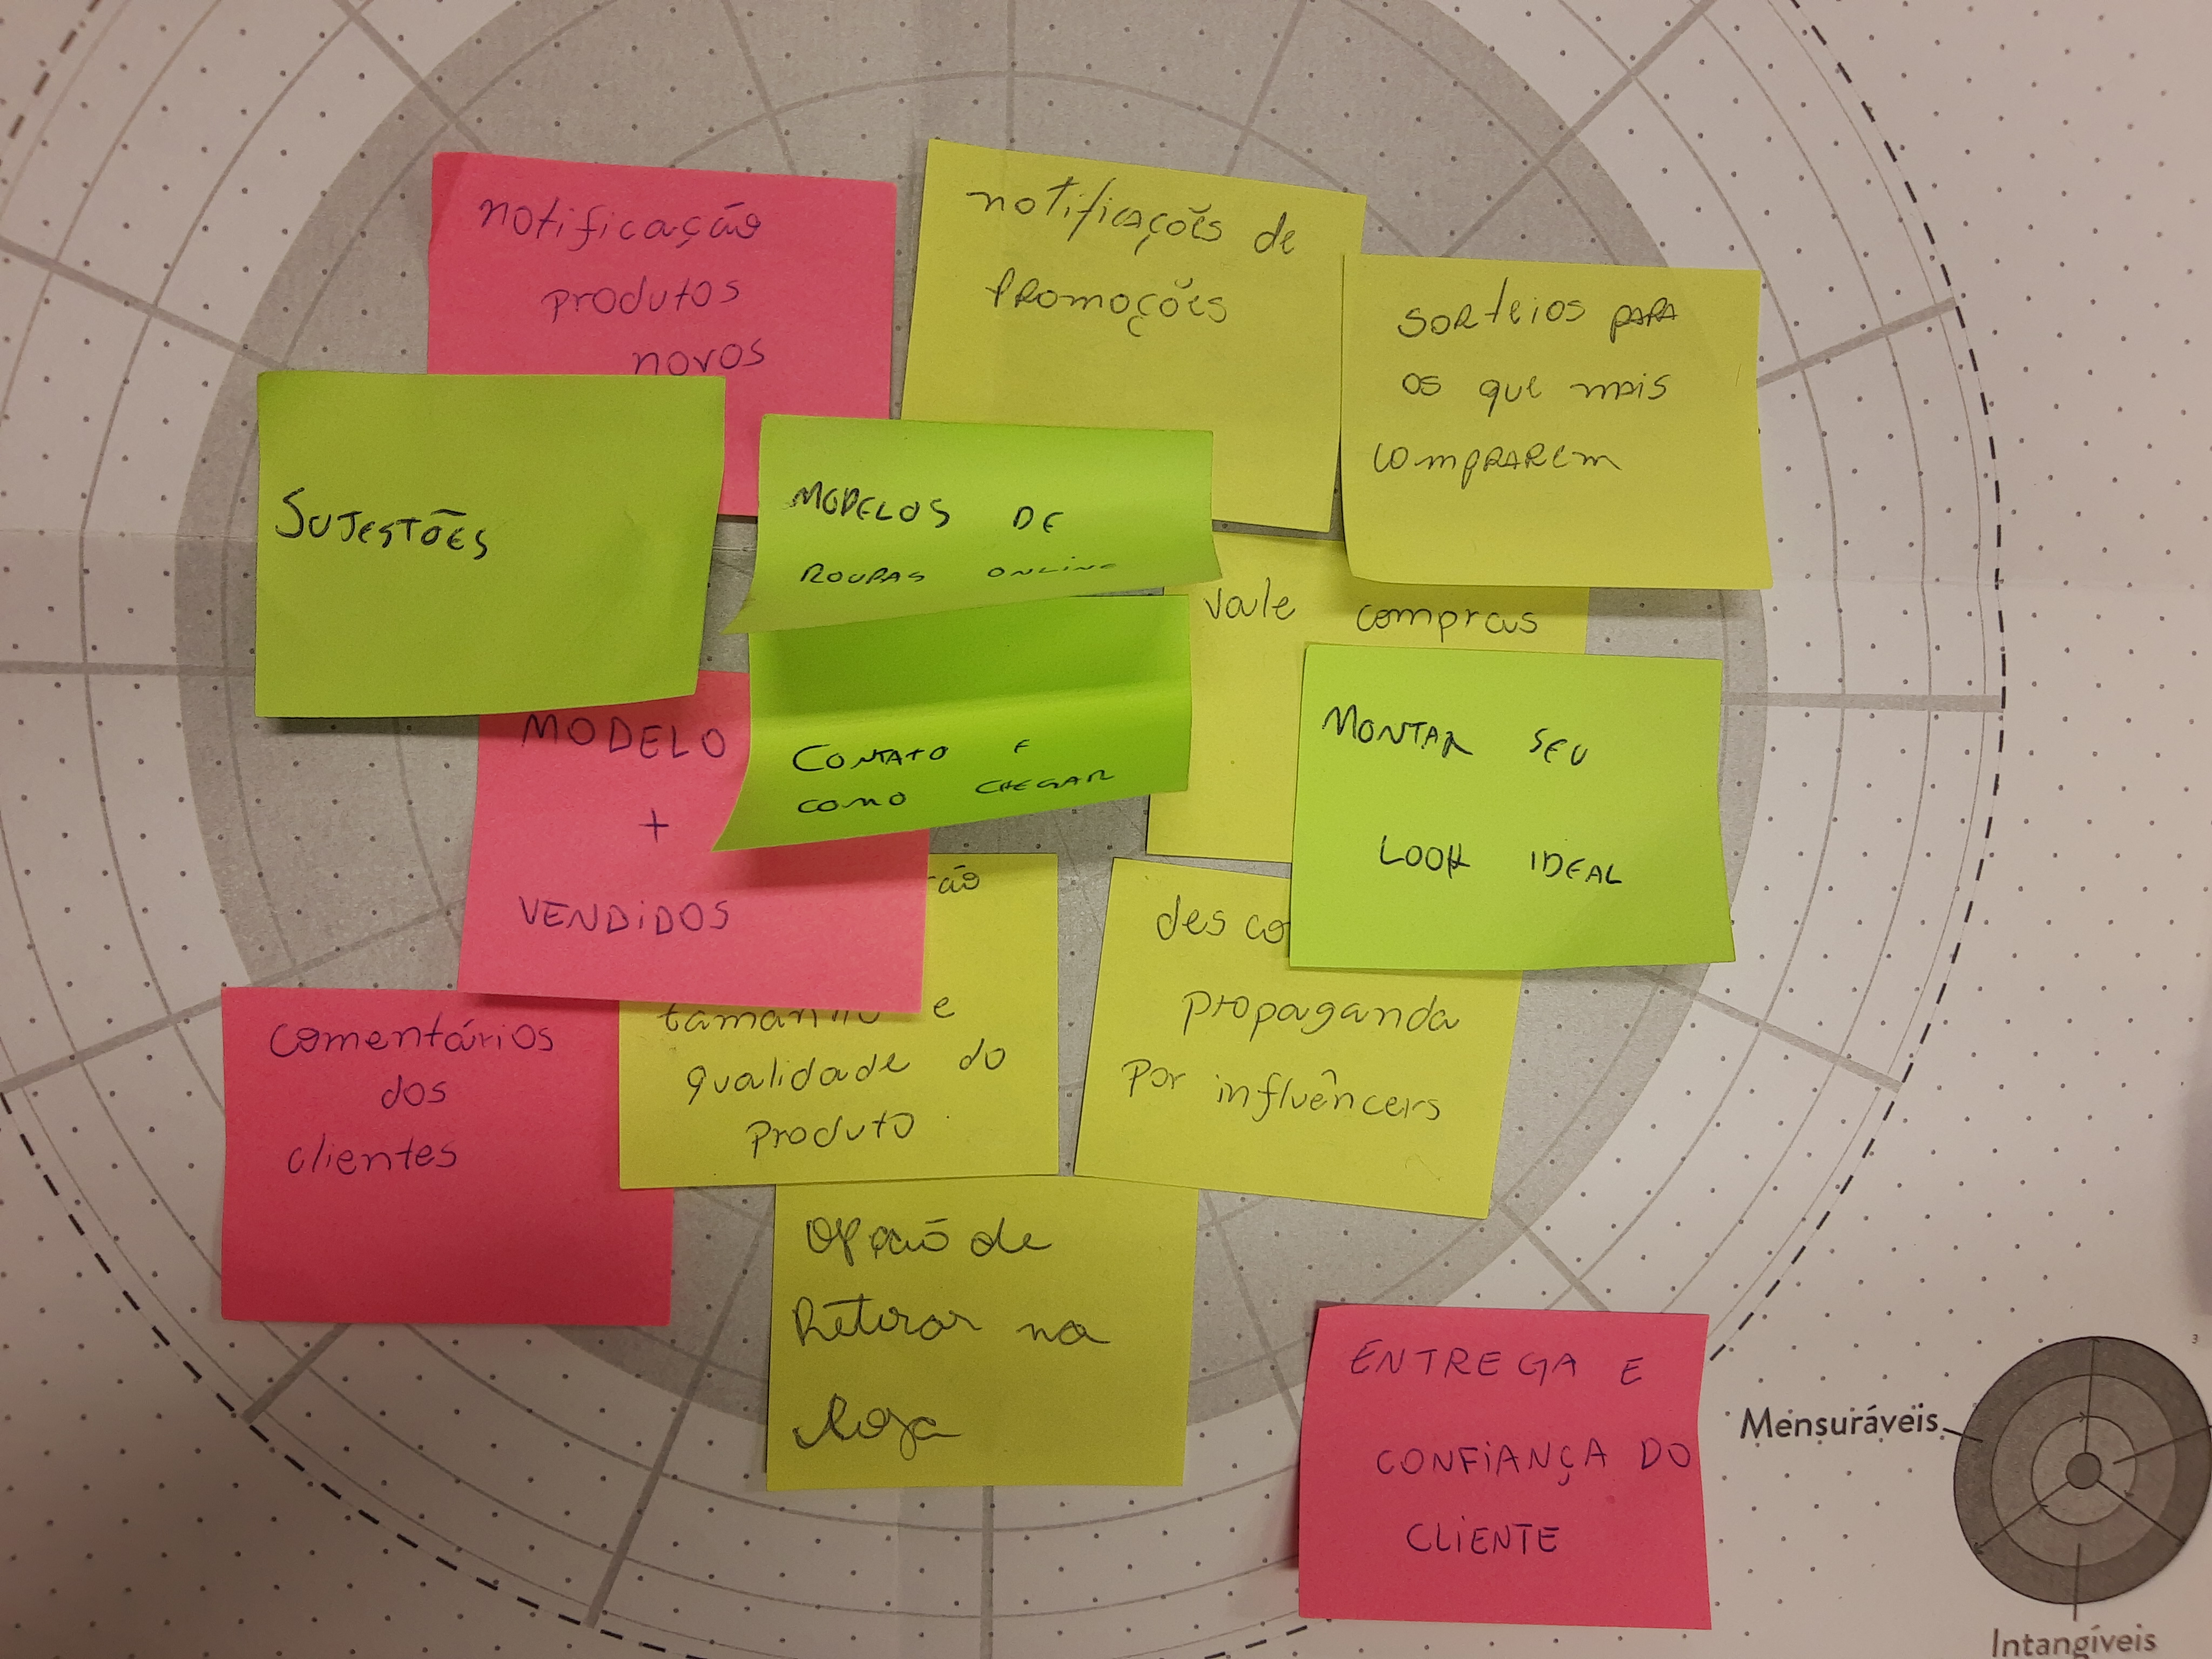 notificação
produtos
novos
notificações de
promoções
sorteios para
os que mais
comprarem
Sujestões
Modelos de
roupas online
vale compras
Contato e
como chegar
Montar seu
look ideal
MODELO
+
VENDIDOS
propaganda
por influêncers
comentários
dos
clientes
tamanho e
qualidade do
produto
Opção de
Retirar na
loja
ENTREGA E
CONFIANÇA DO
CLIENTE
Mensuráveis
Intangíveis
3